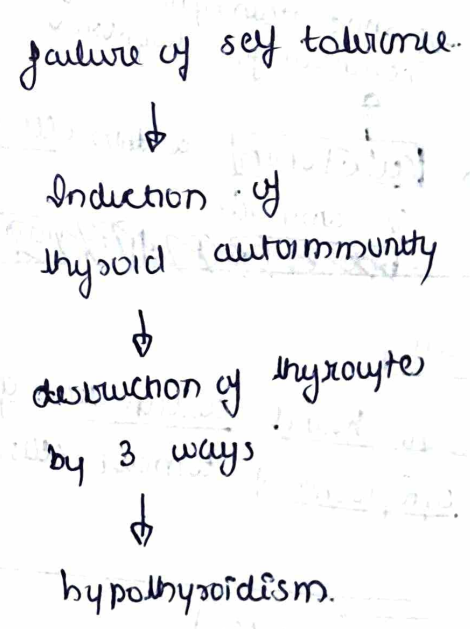 failure of self tolerance.
↓
Induction of
thyroid autoimmunity
↓
destruction of thyrocytes
by 3 ways
↓
hypothyroidism.